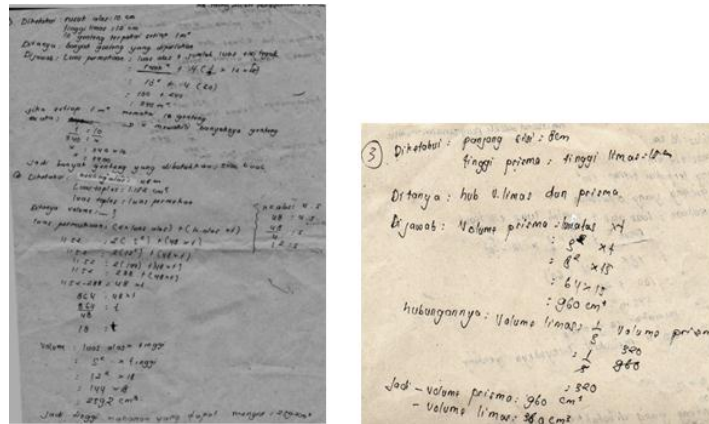 Diketahui : rusuk alas : 10 cm
tinggi limas : 12 cm
10 genteng terpakai setiap 1m²
Ditanya : banyak genteng yang diperlukan
Dijawab : Luas permukaan : luas alas + jumlah luas sisi tegak
: 10² + 4
: 100 + 240
: 340 m²
Jika setiap 1m² memuat 10 genteng
maka :
Jadi banyak genteng yang dibutuhkan :
Diketahui :
Luas
Ditanya volume : _ ?
Luas permukaan : (2 × luas alas) + (k. alas × t)
1152 : 2( s²) + (48 × t)
1152 : 2(12²) + (48 × t)
1152 : 2(144) + (48 × t)
1152 : 288 + (48 × t)
1152 - 288 = 48 × t
864 : 48 × t
864 : t
48
18 : t
k. alas : 4. s
48 : 4. s
48 : s
4
12 : s
Volum : luas alas × tinggi
: s² × tinggi
: 12² × 18
: 144 × 18
: 2592 cm³
Jadi tinggi makanan yang dapat
3 Diketahui : panjang sisi : 8cm
tinggi prisma : tinggi limas : 15cm
Ditanya : hub v. limas dan prisma
Dijawab : Volume prisma : × t
: s² × t
: 8² × 15
: 64 × 15
: 960 cm³
hubungannya : Volume limas : 1/3 volume prism
: 1/3 960 320
: 320
Jadi - volume prisma : 960 cm³
- volume limas : cm³